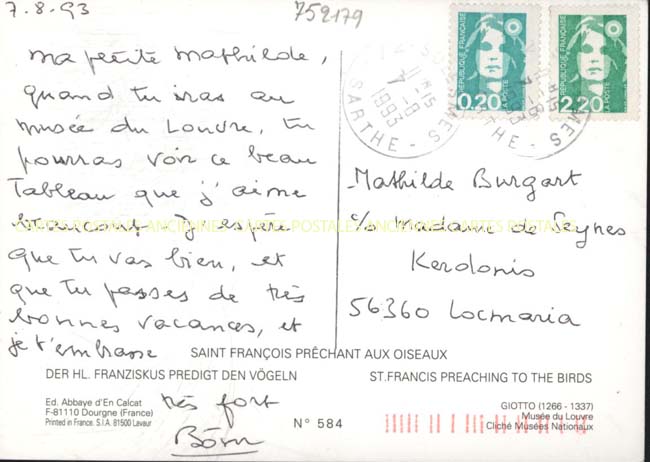 7.8.93
759179
Ma petite Mathilde,
quand tu iras au
musée du Louvre, tu
pourras voir ce beau
Tableau que j'aime
beaucoup. J'espère
que tu vas bien, et
que tu passes de très
bonnes vacances, et
je t'embrasse
très fort
RÉPUBLIQUE FRANÇAISE
0,20
LA POSTE
RÉPUBLIQUE FRANÇAISE
2,20
LA POSTE
11H15
7-8
1993
SARTHE
Mathilde Burgart
c/o Madame de Seynes
Kerdonis
56360 Locmaria
CARTES POSTALES ANCIENNES CARTES POSTALES ANCIENNES CARTES POSTALES
SAINT FRANÇOIS PRÊCHANT AUX OISEAUX
DER HL. FRANZISKUS PREDIGT DEN VÖGELN
ST. FRANCIS PREACHING TO THE BIRDS
Ed. Abbaye d'En Calcat
F-81110 Dourgne (France)
Printed in France. S.I.A. 81500 Lavaur
N° 584
GIOTTO (1266 - 1337)
Musée du Louvre
Cliché Musées Nationaux